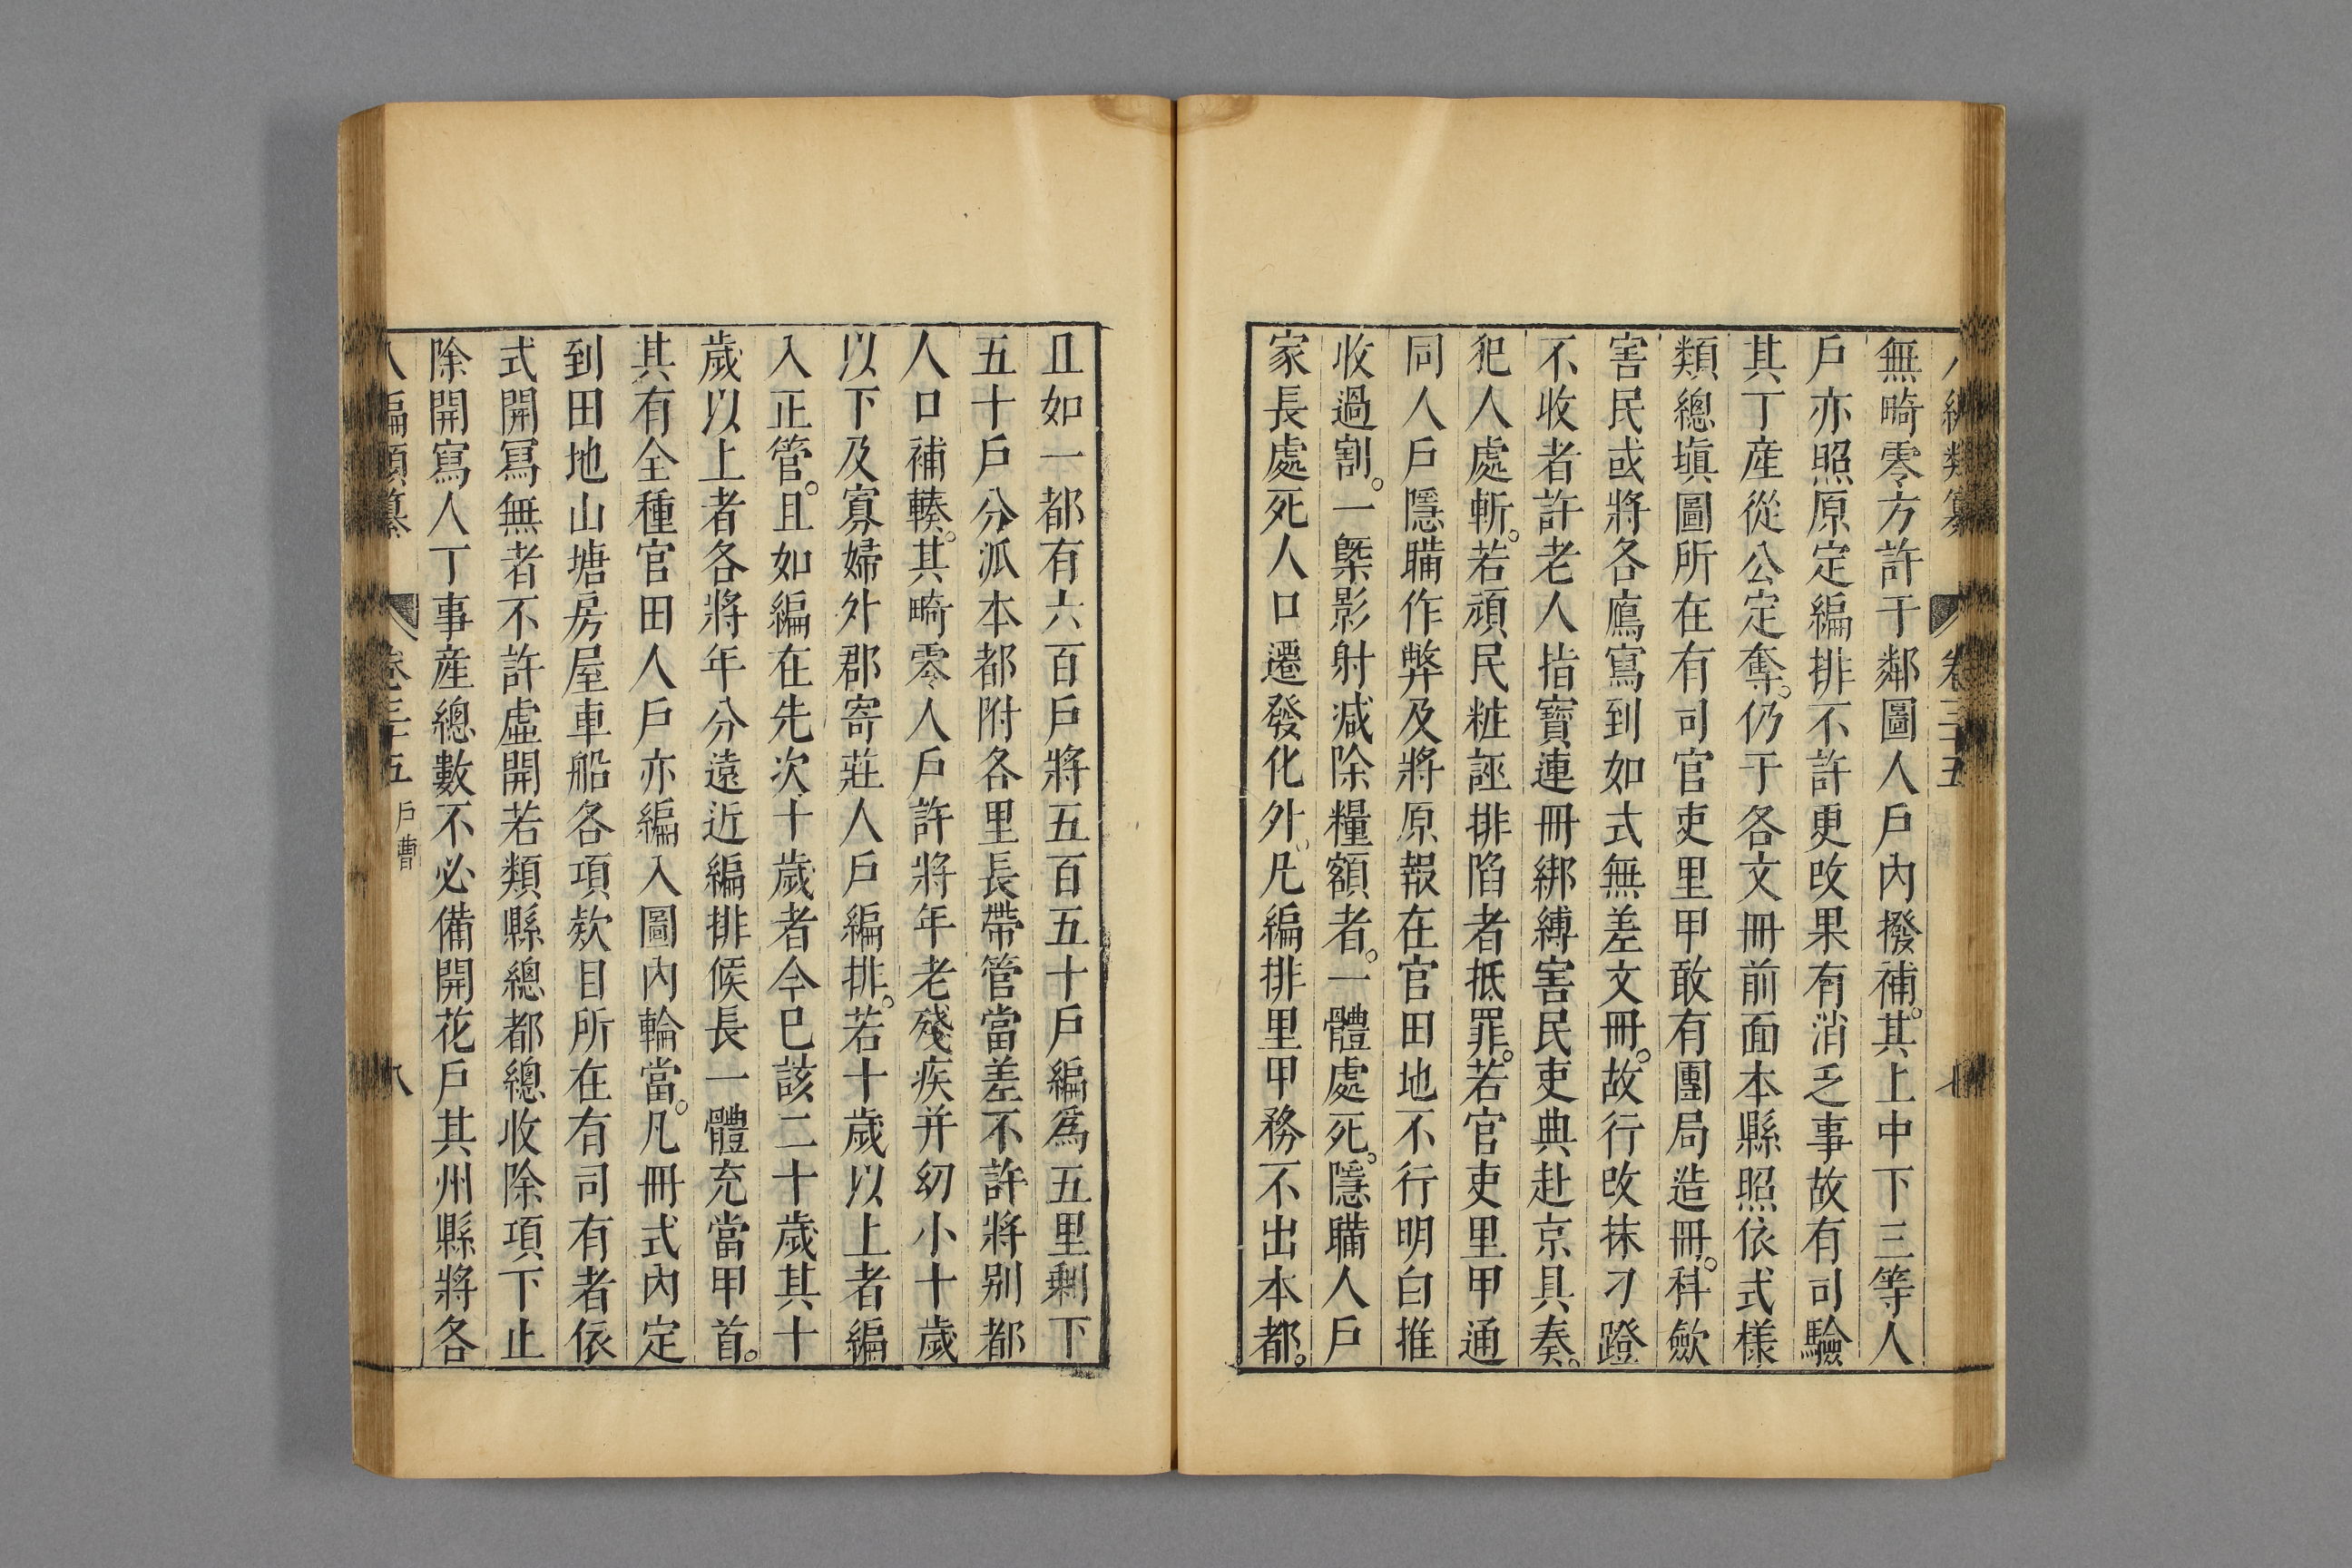 八編類纂 卷三五 七
無畸零方許于鄰圖人戶內撥補。其上中下三等人
戶亦照原定編排不許更改果有消乏事故有司驗
其丁產從公定奪。仍于各文冊前面本縣照依式樣
類總塡圖所在有司官吏里甲敢有團局造冊。科歛
害民或將各廌寫到如式無差文冊。故行改抹刁蹬
不收者許老人指實連冊綁縛害民吏典赴京具奏。
犯人處斬。若頑民粧誣排陷者抵罪。若官吏里甲通
同人戶隱瞞作弊及將原報在官田地不行明白推
收過割。一槩影射減除糧額者。一體處死。隱瞞人戶
家長處死人口遷發化外。凡編排里甲務不出本都。
且如一都有六百戶將五百五十戶編爲五里剩下
五十戶分派本都附各里長帶管當差不許將别都
人口補輳。其畸零人戶許將年老殘疾并幼小十歲
以下及寡婦外郡寄莊人戶編排。若十歲以上者編
入正管。且如編在先次十歲者今已該二十歲其十
歲以上者各將年分遠近編排候長一體充當甲首。
其有全種官田人戶亦編入圖內輪當。凡冊式內定
到田地山塘房屋車船各項欵目所在有司有者依
式開冩無者不許虛開若類縣總都總收除項下止
除開寫人丁事產總數不必備開花戶其州縣將各
八編類纂 卷三五 戶曹 八